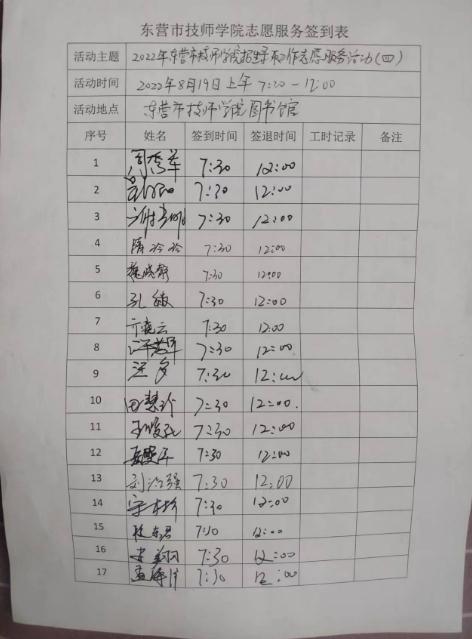 东营市技师学院志愿服务签到表
活动主题 2022年东营市技师学院招生工作志愿服务活动(四)
活动时间 2022年8月19日上午 7:30-12:00
活动地点 东营市技师学院图书馆
序号 姓名 签到时间 签退时间 工时记录 备注
1 7:30 12:00
2 7:30 12:00
3 7:30 12:00
4 隋冷冷 7:30 12:00
5 7:30 12:00
6 孔敏 7:30 12:00
7 亓晓云 7:30 12:00
8 7:30 12:00
9 7:30 12:00
10 田慧玲 7:30 12:00.
11 7:30 12:00
12 7:30 12:00
13 刘治强 7:30 12:00
14 7:30 12:00
15 7:30 12:00
16 7:30 12:00
17 7:30 12:00